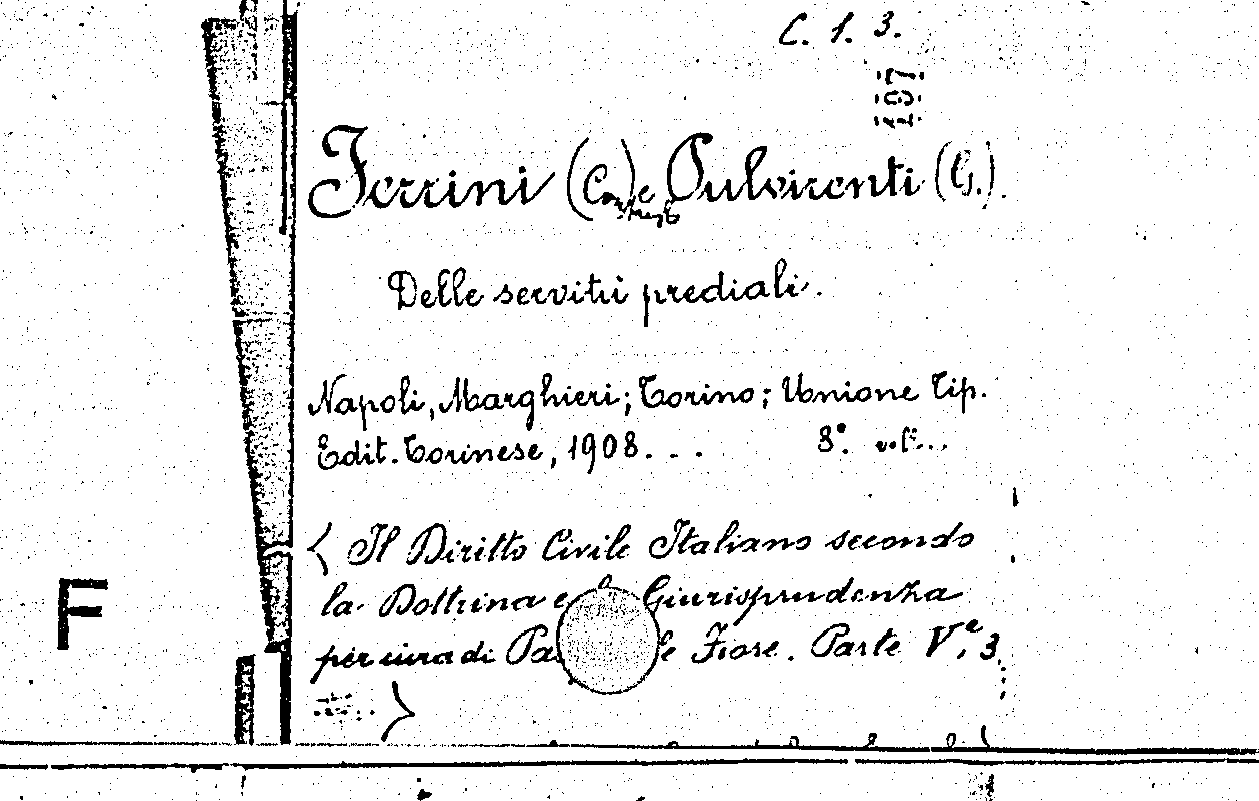 C. 1. 3.
197
Ferrini (Contardo) e Pulvirenti (G.).
Delle servitù prediali.
Napoli, Marghieri; Torino; Unione Tip.
Edit. Torinese, 1908... 8°. vol...
< Il Diritto Civile Italiano secondo
la Dottrina e la Giurisprudenza
per cura di Pa le Fiore. Parte Vᵃ. 3
>
F